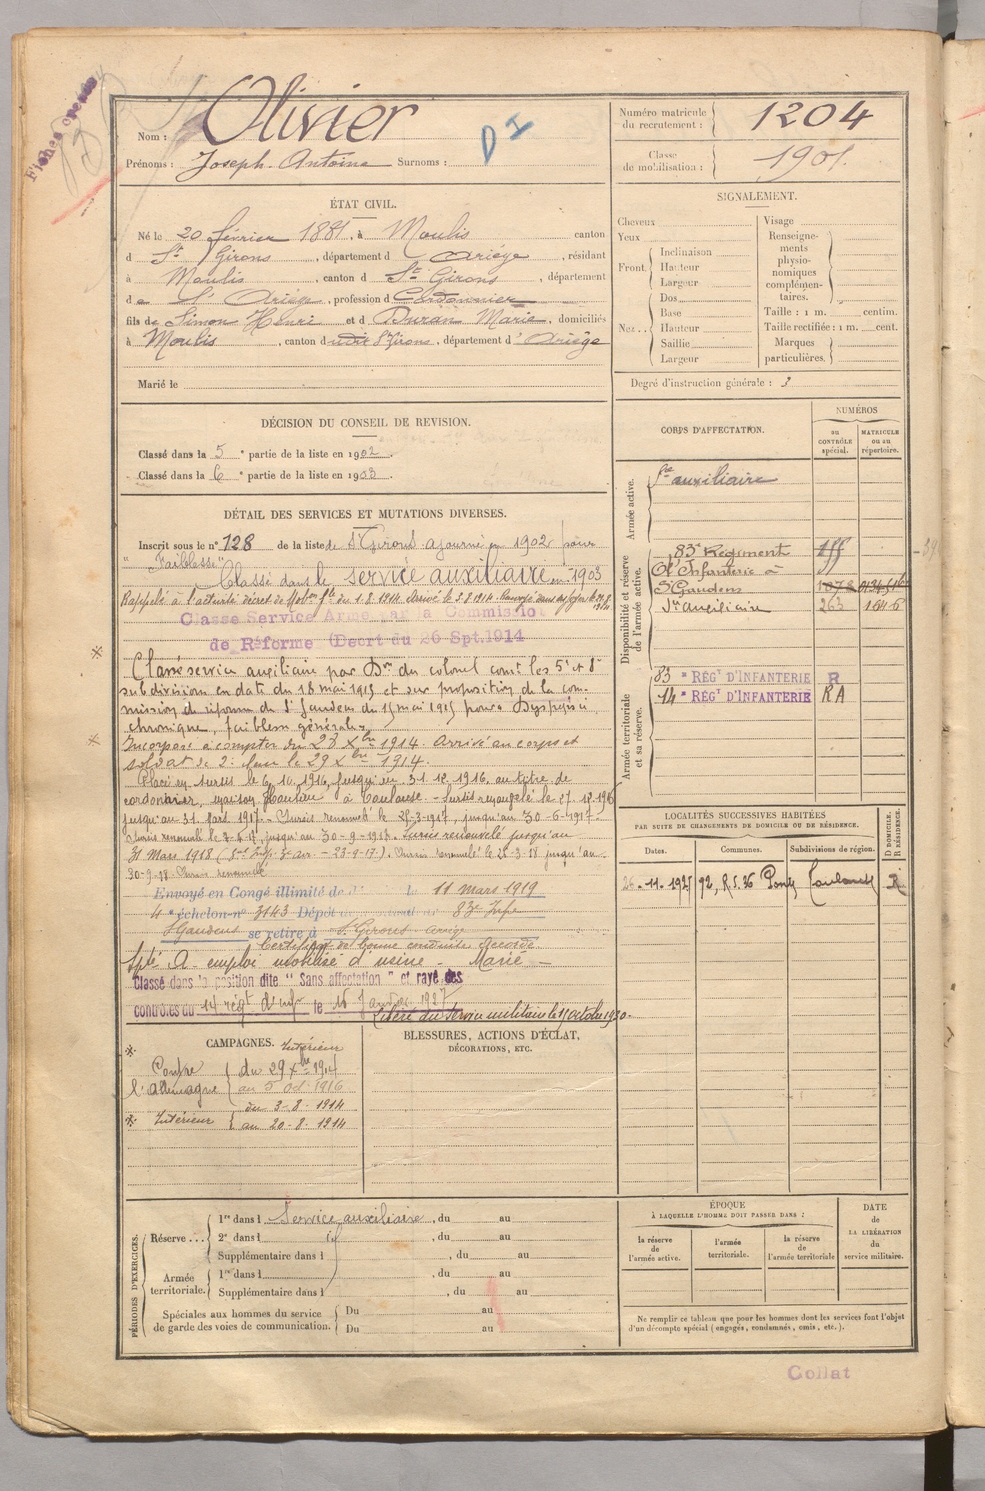 Fiches créées
Nom : Olivier
Prénoms : Joseph-Antoine Surnoms :
D I
Numéro matricule du recrutement : 1204
Classe de mobilisation : 1901.
ÉTAT CIVIL.
Né le 20 février 1881, à Moulis canton
d St Girons, département d Ariège, résidant
à Moulis, canton d St Girons, département
de l'Ariège, profession d Cordonnier
fils de Simon Henri et d Duran Marie, domiciliés
à Moulis, canton d udit St Girons, département d'Ariège
Marié le
SIGNALEMENT.
Cheveux
Yeux
Front.
Inclinaison
Hauteur
Largeur
Nez..
Dos
Base
Hauteur
Saillie
Largeur
Visage
Renseignements physionomiques complémentaires.
Taille : 1 m. centim.
Taille rectifiée : 1 m. cent.
Marques particulières.
Degré d'instruction générale : 3
DÉCISION DU CONSEIL DE REVISION.
Classé dans la 5e partie de la liste en 1902.
Classé dans la 6e partie de la liste en 1903.
DÉTAIL DES SERVICES ET MUTATIONS DIVERSES.
Inscrit sous le n° 128 de la liste de St Girons ajourné en 1902 pour
"Faiblesse"
Classé dans le service auxiliaire en 1903
Rappelé à l'activité décret de Mobon Gle du 1.8.1914. Arrivé le 3.8.1914. Renvoyé dans ses foyers le
Classé Service Armé par la Commission
de Réforme (Décrt du 26 Spt.1914
Classé service auxiliaire par Don du colonel comt les 5e et 8e
subdivisions en date du 18 mai 1915 et sur proposition de la com-
mission de réforme de St Gaudens du 15 mai 1915 pour Dyspepsie
chronique, faiblesse générale
Incorporé à compter du 28 Xbre 1914. Arrivé au corps et
soldat de 2e classe le 29 Xbre 1914.
Placé en sursis le 6.10.1916, jusqu'au 31.12.1916, au titre de
cordonnier, maison à Toulouse. - Sursis renouvelé le 27.12.1916
jusqu'au 31. Mars. 1917. - Sursis renouvelé le 25-3-1917, jusqu'au 30-6-1917.
Sursis renouvelé le jusqu'au 30-9-1917. Sursis renouvelé jusqu'au
31 Mars 1918 Sursis renouvelé le 25-3-18 jusqu'au
30-9-18. Sursis renouvelé
Envoyé en Congé illimité de le 11 mars 1919
4e échelon-n° 3143 Dépôt 83e Infie
St Gaudens se retire à St Girons Ariège
Certificat de bonne conduite Accordé
Apte A emploi mobilisé d'usine - Marié -
Classé dans la position dite "Sans affectation" et rayé des
contrôles du 14 régt d'infie le 16 Janvier 1927
Libéré du service militaire le 15 octobre 1930.
CORPS D'AFFECTATION.
NUMÉROS
au CONTRÔLE spécial.
MATRICULE ou au répertoire.
Armée active.
Sce auxiliaire
Disponibilité et réserve de l'armée active.
83e Régiment
d'Infanterie à
St Gaudens
Sce auxiliaire 263 1646
Armée territoriale et sa réserve.
83e RÉGt D'INFANTERIE R
14e RÉGt D'INFANTERIE RA
LOCALITÉS SUCCESSIVES HABITÉES
PAR SUITE DE CHANGEMENTS DE DOMICILE OU DE RÉSIDENCE.
Dates. Communes. Subdivisions de région. D DOMICILE. R RÉSIDENCE.
26-11-1925 Toulouse R
CAMPAGNES.
Intérieur
Contre l'Allemagne
du 29 Xbre 1914
au 5 Oct 1916
Intérieur
du 3-8-1914
au 20-8-1914
BLESSURES, ACTIONS D'ÉCLAT,
DÉCORATIONS, ETC.
PÉRIODES D'EXERCICES.
Réserve...
1re dans l Service auxiliaire, du au
2e dans l , du au
Supplémentaire dans l , du au
Armée territoriale.
1re dans l , du au
Supplémentaire dans l , du au
Spéciales aux hommes du service
de garde des voies de communication.
Du au
Du au
ÉPOQUE
À LAQUELLE L'HOMME DOIT PASSER DANS :
la réserve de l'armée active.
l'armée territoriale.
la réserve de l'armée territoriale
DATE de LA LIBÉRATION du service militaire.
Ne remplir ce tableau que pour les hommes dont les services font l'objet
d'un décompte spécial (engagés, condamnés, omis, etc.).
Collat